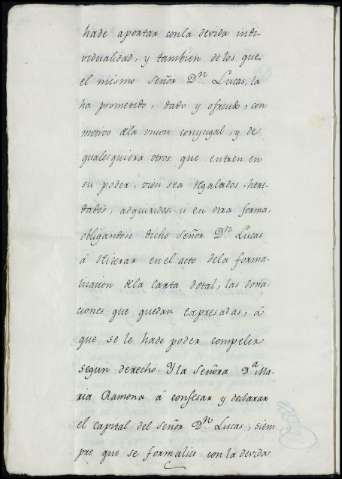 hade aportar con la devida indi-
vidualidad, y tambien de los que
el mismo Señor Dn. Lucas, la
ha prometido, dado y ofrecido, con
motivo de la union conyugal, y de
qualesquiera otros que entren en
su poder, vien sea regalados, here-
dados, adquiridos, u en otra forma,
obligandose dicho Señor Dn. Lucas
á reiterar en el acto de la forma-
lizacion de la Carta dotal, las dona-
ciones que quedan expresadas, á
que se le hade poder compeler
segun derecho. Y la Señora Da. Ma-
ria Ramona á confesar y declarar
el capital del Señor Dn. Lucas, siem-
pre que se formalice con la devida